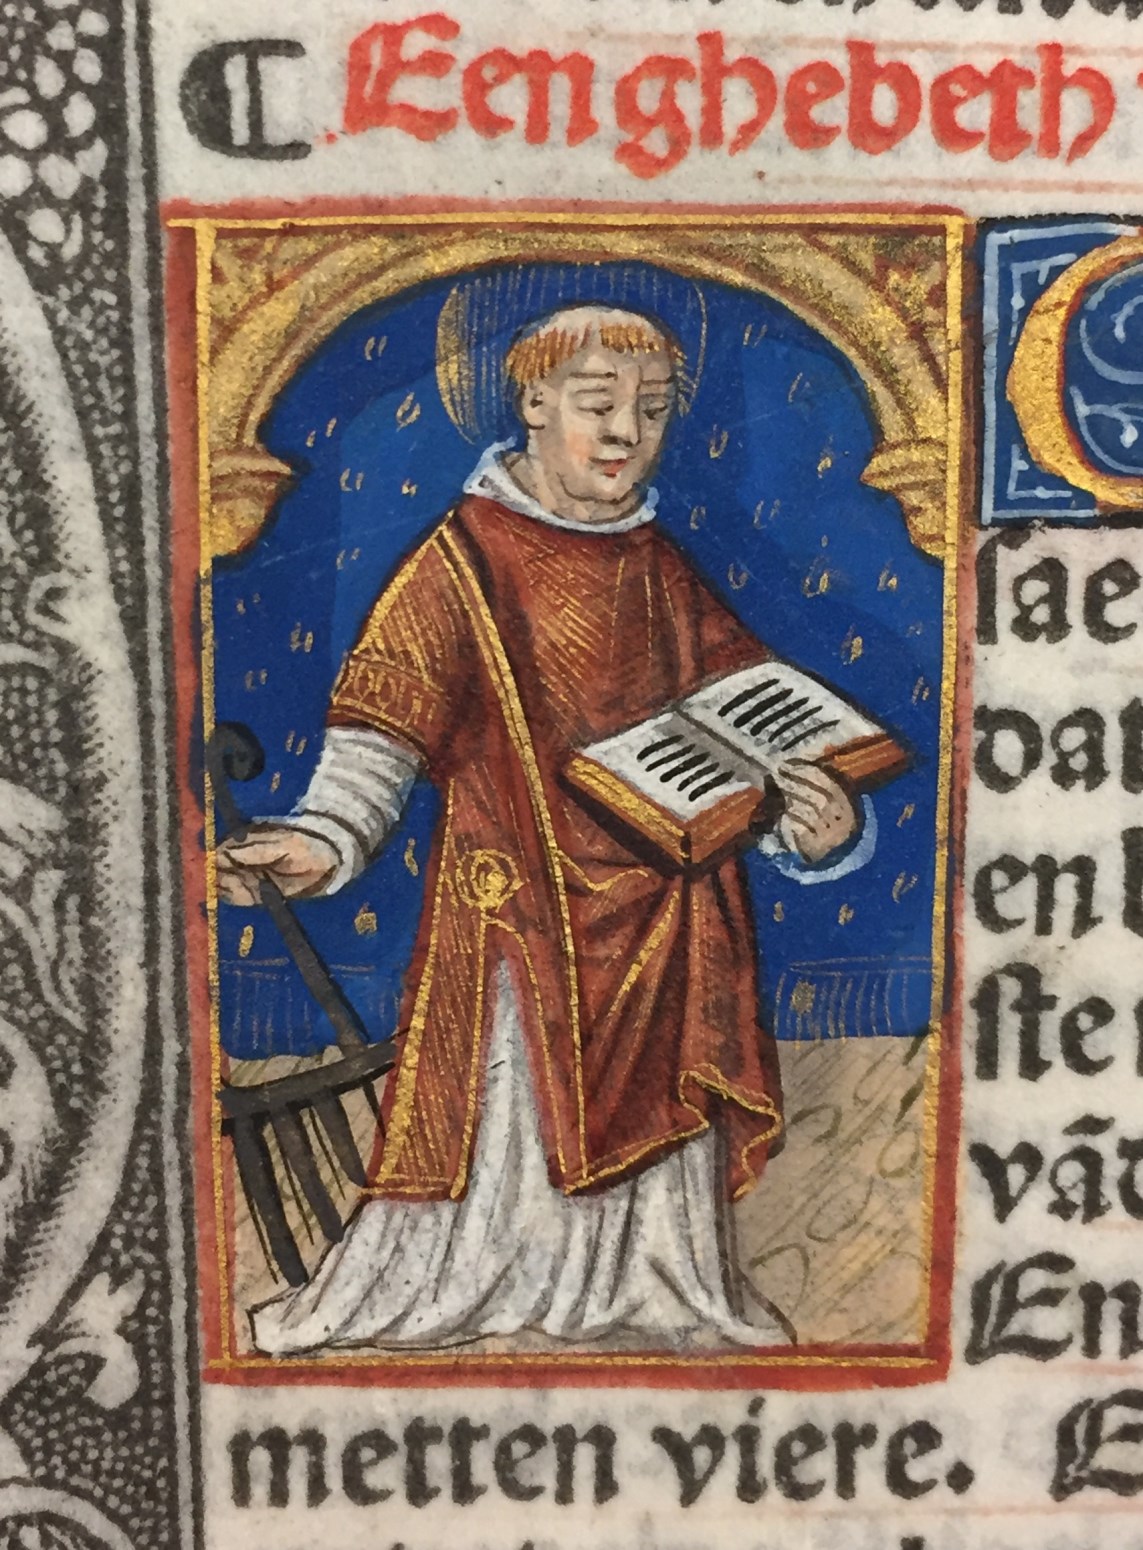 ¶ Een ghebeth
C
sae
dat
en
ste
vā
En
metten viere. E